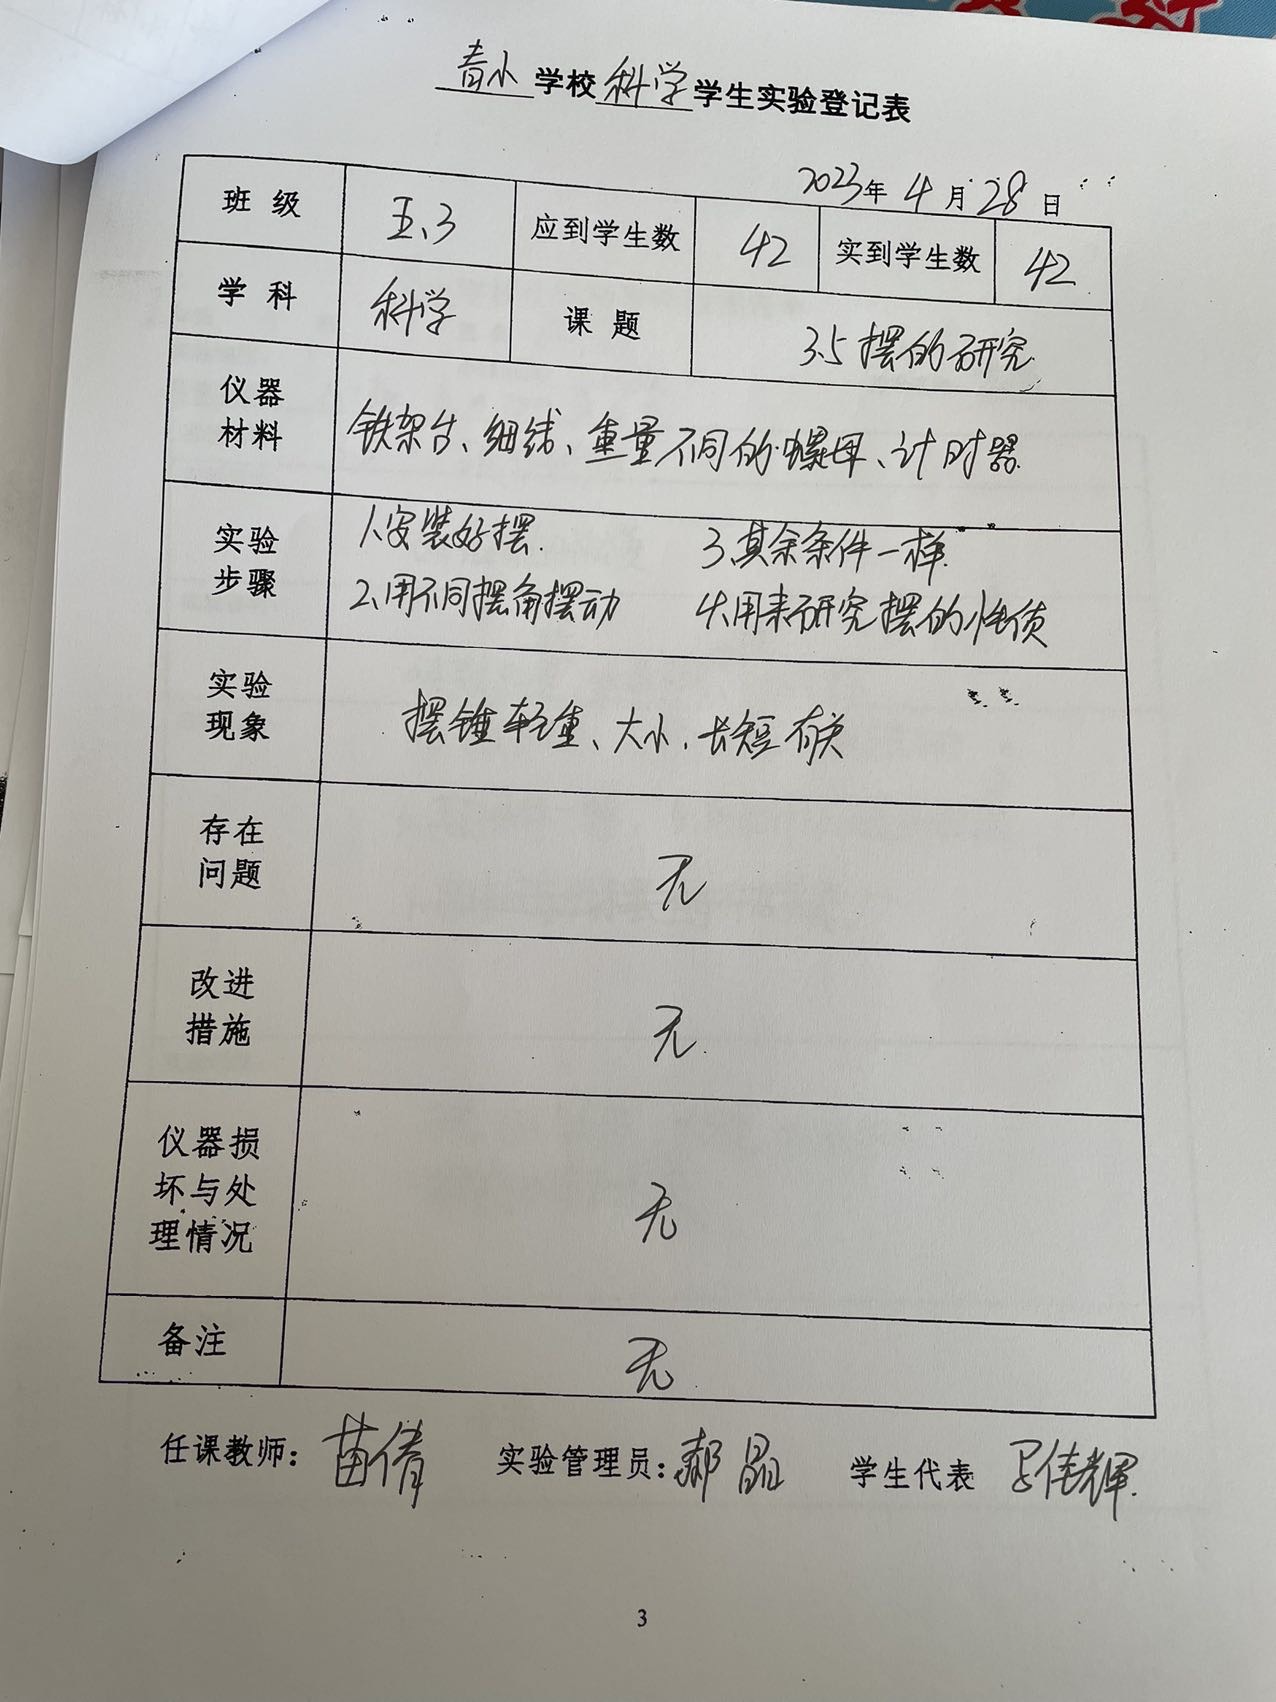 青小学校科学学生实验登记表
2023年4月28日
班级 五、3 应到学生数 42 实到学生数 42
学科 科学 课题 3.5 摆的研究
仪器
材料
铁架台、细线、重量不同的螺母、计时器
实验
步骤
1、安装好摆. 3、其余条件一样.
2、用不同摆角摆动 4、用来研究摆的性质
实验
现象
摆锤轻重、大小、长短有关
存在
问题
无
改进
措施
无
仪器损
坏与处
理情况
无
备注 无
任课教师：苗倩 实验管理员：郝晶 学生代表 佳辉
3